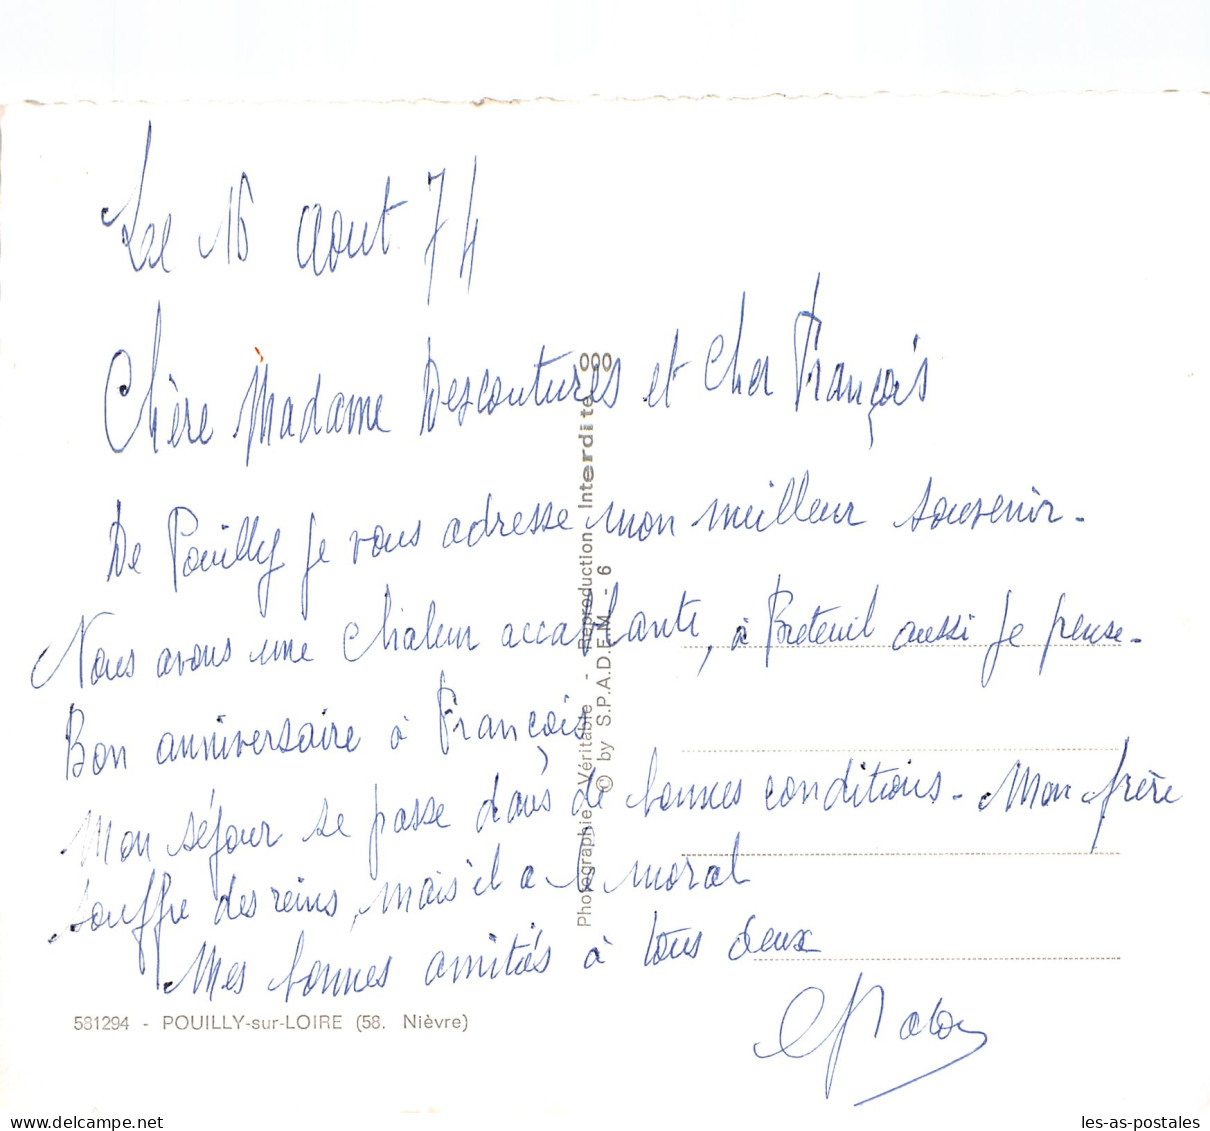 Le 16 Aout 74
Chère Madame Descoutures et Cher François
De Pouilly je vous adresse mon meilleur souvenir.
Nous avons une chaleur accablante, à Breteuil aussi je pense.
Bon anniversaire à François
Mon séjour se passe dans de bonnes conditions. Mon frère
souffre des reins, mais il a le moral
Mes bonnes amitiés à tous deux
581294 - POUILLY-sur-LOIRE (58. Nièvre)
Photographie Véritable - Reproduction Interdite 000
© by S.P.A.D.E.M. - 6
delcampe.net
les-as-postales